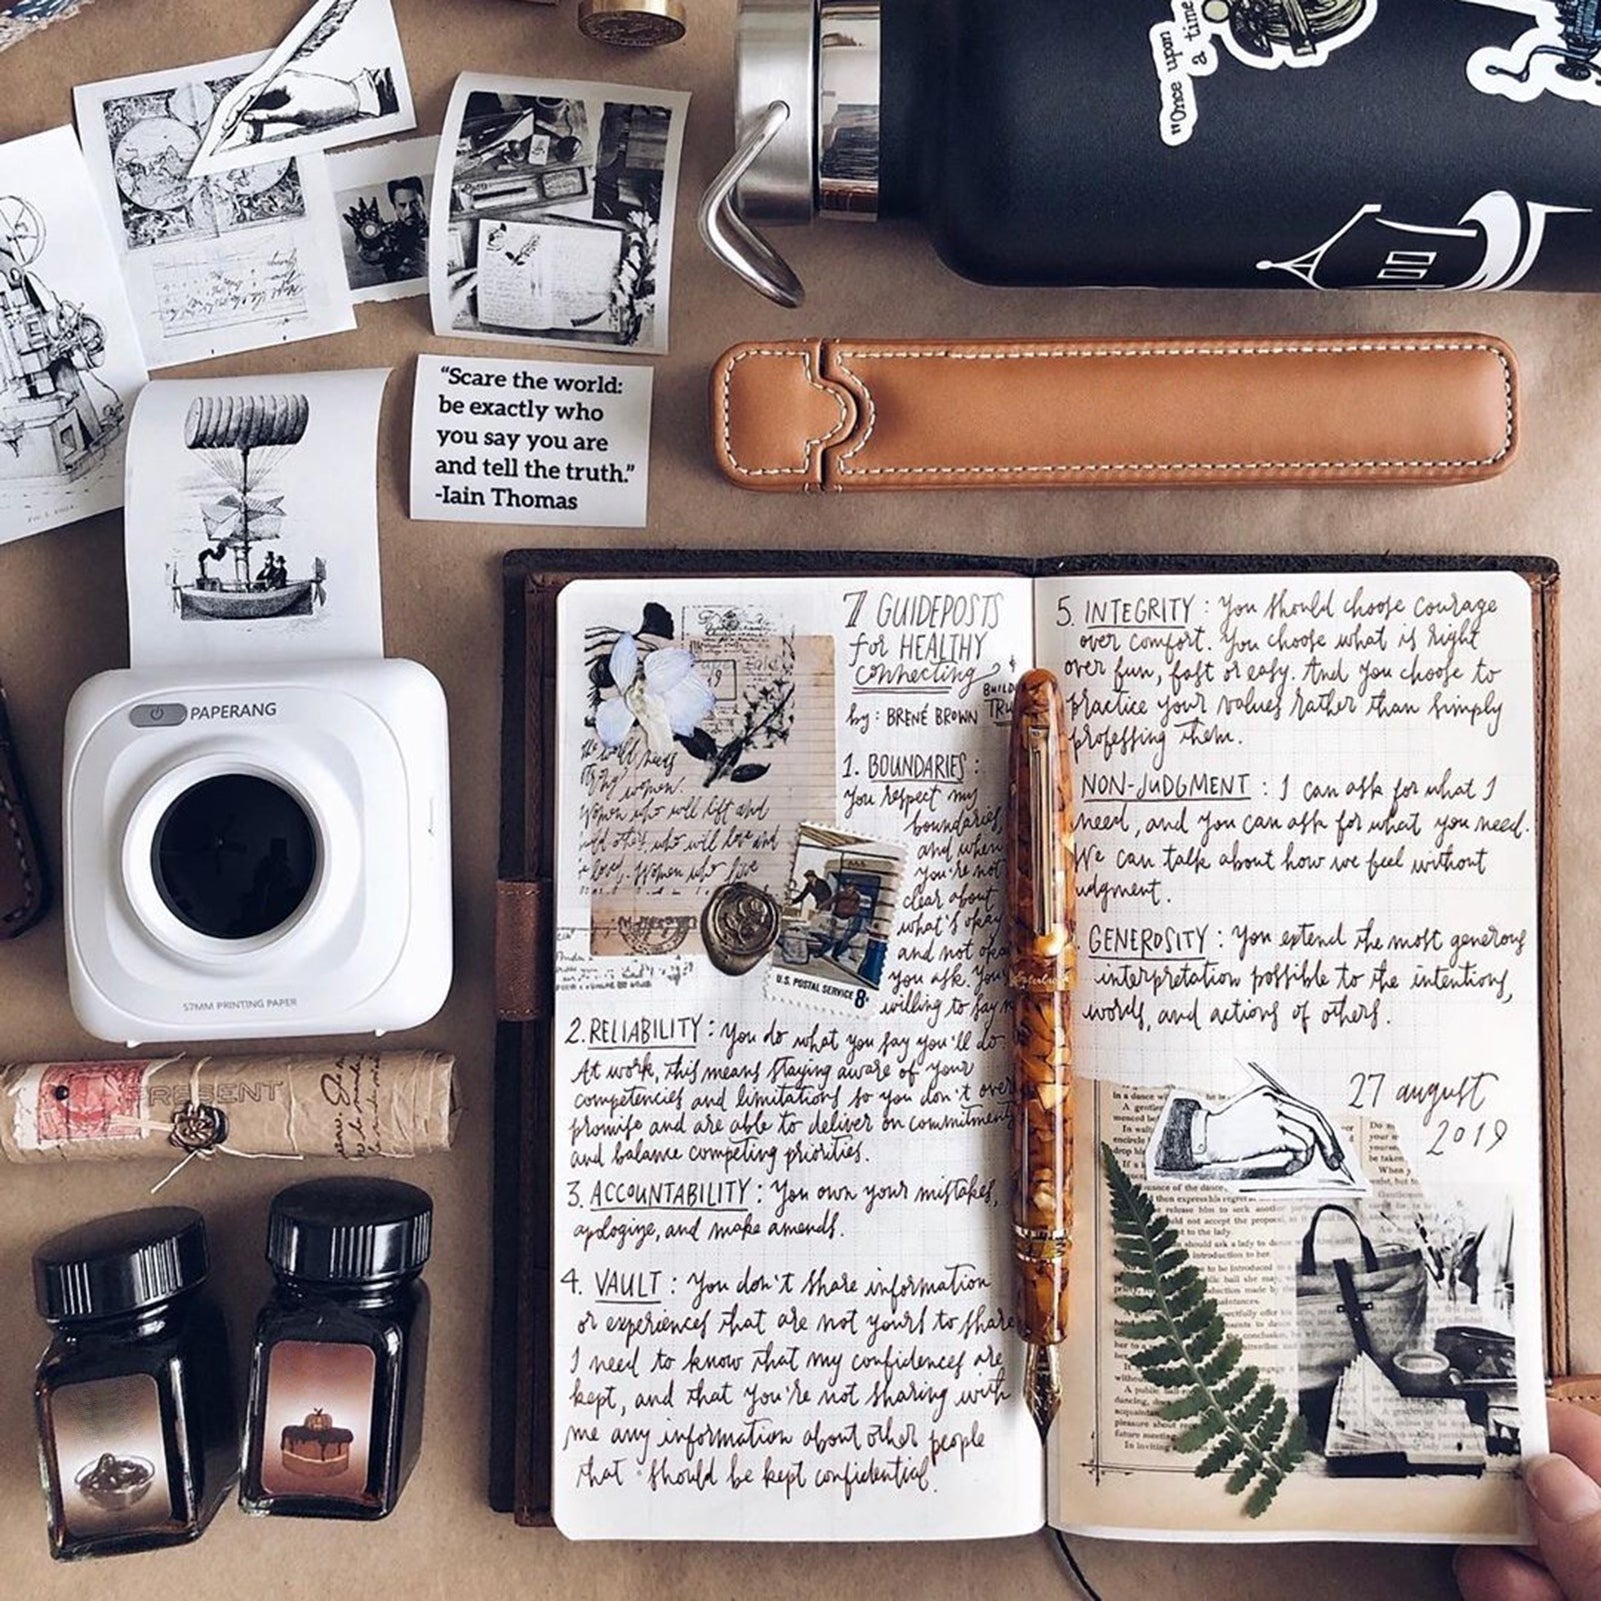 "Once upon
a time
"Scare the world:
be exactly who
you say you are
and tell the truth."
-Iain Thomas
PAPERANG
57MM PRINTING PAPER
PRESENT
7 GUIDEPOSTS
for HEALTHY
connecting &
BUILD
by: BRENÉ BROWN
the world needs
strong women.
Women who will lift and
who will love and
be loved. Women who live
U.S. POSTAL SERVICE 8¢
1. BOUNDARIES:
You respect my
boundaries,
and when
you're not
clear about
what's okay
and not okay
you ask. You're
willing to say
2. RELIABILITY: You do what you say you'll do.
At work, this means staying aware of your
competencies and limitations so you don't over
promise and are able to deliver on commitments
and balance competing priorities.
3. ACCOUNTABILITY: You own your mistakes,
apologize, and make amends.
4. VAULT: You don't share information
or experiences that are not yours to share
I need to know that my confidences are
kept, and that you're not sharing with
me any information about other people
that should be kept confidential.
5. INTEGRITY: You should choose courage
over comfort. You choose what is right
over fun, fast or easy. And you choose to
practice your values rather than simply
professing them.
NON-JUDGMENT: I can ask for what I
need, and you can ask for what you need.
We can talk about how we feel without
judgment.
GENEROSITY: You extend the most generous
interpretation possible to the intentions,
words, and actions of others.
27 august
2019